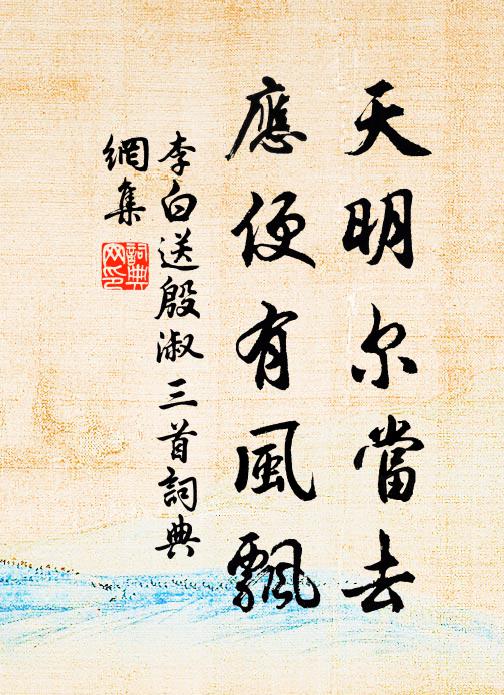 天明尔當去
應便有風飄
李白送殷淑三首詞典
網集
詞典
网印